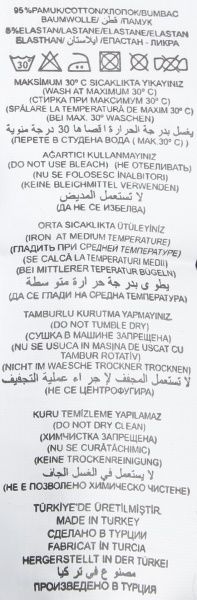 95%PAMUK/COTTON/ХЛОПОК/BUMBAC
BAUMWOLLE/قطن/ПАМУК
5%ELASTAN/ELASTANE/ELASTAN/ELASTAN
ELASTHAN/ايلاستان/ЕЛАСТАН - ЛИКРА
30
MAKSİMUM 30° C SICAKLIKTA YIKAYINIZ
(WASH AT MAXIMUM 30° C)
(СТИРКА ПРИ МАКСИМУМ 30° C)
(SPĂLARE LA TEMPERATURĂ DE MAXIM 30° C)
(BEI MAX. 30° WASCHEN)
يغسل بدرجة الحرارة اقصاها 30 درجة مئوية
(ПЕРЕТЕ В СТУДЕНА ВОДА ( MAK.30°C ) )
AĞARTICI KULLANMAYINIZ
(DO NOT USE BLEACH) (НЕ ОТБЕЛИВАТЬ)
(NU SE FOLOSESC INALBITORI)
(KEINE BLEICHMITTEL VERWENDEN)
لا تستعمل المبيض
(ДА НЕ СЕ ИЗБЕЛВА)
ORTA SICAKLIKTA ÜTÜLEYİNİZ
(IRON AT MEDIUM TEMPERATURE)
(ГЛАДИТЬ ПРИ СРЕДНЕЙ ТЕМПЕРАТУРЕ)
(SE CALCĂ LA TEMPERATURI MEDII)
(BEI MITTLERER TEPERATUR BÜGELN)
يطوى بدرجة حرارة متوسطة
(ДА СЕ ГЛАДИ НА СРЕДНА ТЕМПЕРАТУРА)
TAMBURLU KURUTMA YAPMAYINIZ.
(DO NOT TUMBLE DRY)
(СУШКА В МАШИНЕ ЗАПРЕЩЕНА)
(NU SE USUCA IN MAŞINA DE USCAT CU
TAMBUR ROTATİV)
(NICHT IM WAESCHE TROCKNER TROCKNEN)
لا تستعمل المجفف لإجراء عملية التجفيف
(НЕ СЕ ЦЕНТРОФУГИРА)
KURU TEMİZLEME YAPILAMAZ
(DO NOT DRY CLEAN)
(ХИМЧИСТКА ЗАПРЕЩЕНА)
(NU SE CURĂTĂCHIMIC)
(KEINE TROCKENREINIGUNG)
لا يستعمل في الغسل الجاف
(НЕ Е ПОЗВОЛЕНО ХИМИЧЕСКО ЧИСТЕНЕ)
TÜRKİYE'DE ÜRETİLMİŞTİR
MADE IN TURKEY
СДЕЛАНО В ТУРЦИИ
FABRICAT ÎN TURCIA
HERGERSTELLT IN DER TÜRKEI
مصنوع في تركيا
ПРОИЗВЕДЕНО В ТУРЦИЯ